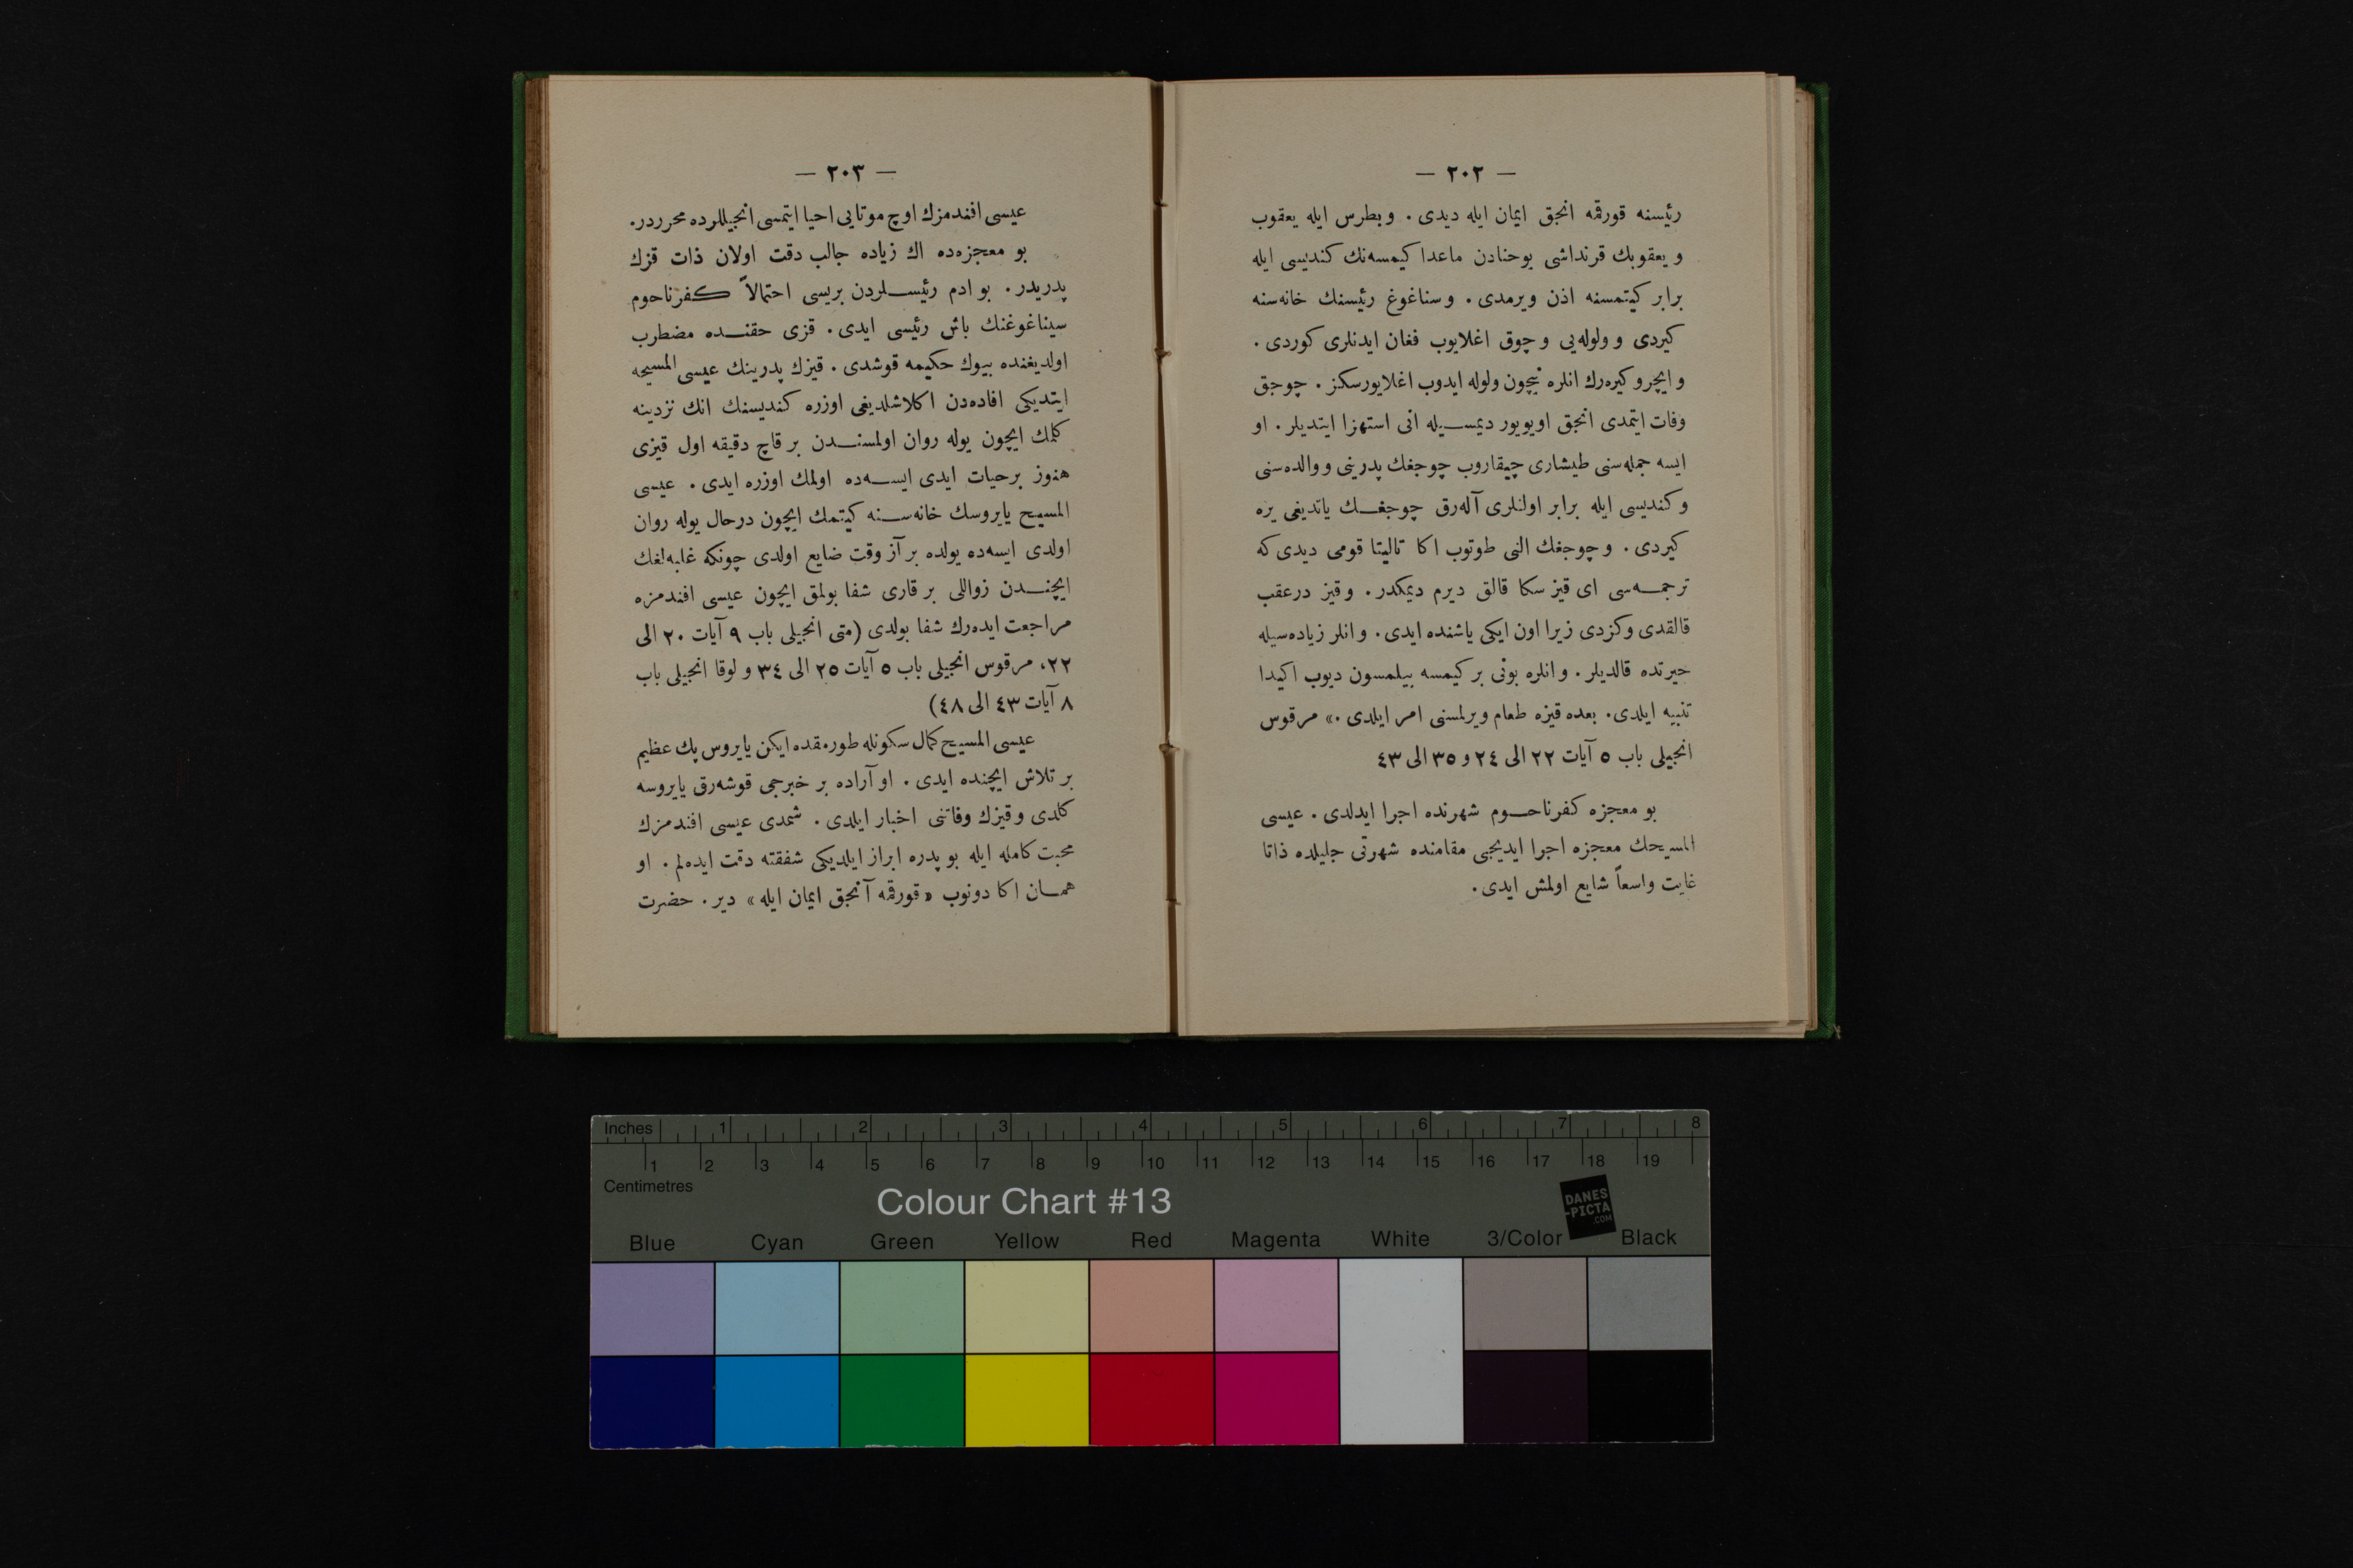 — ٢٠٢ —
رئيسنه قورقمه انجق ايمان ايله ديدى . و بطرس ايله يعقوب
و يعقوبك قرنداشى يوحنادن ماعدا كيمسه‌نك كنديسى ايله
برابر كيتمسنه اذن ويرمدى . و سناغوغ رئيسنك خانه‌سنه
كيردى و ولوله‌يى و چوق اغلايوب فغان ايدنلرى كوردى .
و ايچرو كيره‌رك انلره نيچون ولوله ايدوب اغلايورسكز . چوجق
وفات ايتمدى انجق اويويور ديمسيله انى استهزا ايتديلر . او
ايسه جمله‌سنى طيشارى چيقاروب چوجغك پدرينى و والده‌سنى
و كنديسى ايله برابر اولنلرى آله‌رق چوجغك ياتديغى يره
كيردى . و چوجغك النى طوتوب اكا تاليتا قومى ديدى كه
ترجمه‌سى اى قيز سكا قالق ديرم ديمكدر . و قيز درعقب
قالقدى و كزدى زيرا اون ايكى ياشنده ايدى . و انلر زياده‌سيله
حيرتده قالديلر . و انلره بونى بر كيمسه بيلمسون ديوب اكيدا
تنبيه ايلدى . بعده قيزه طعام ويرلمسنى امر ايلدى .» مرقوس
انجيلى باب ٥ آيات ٢٢ الى ٢٤ و ٣٥ الى ٤٣
بو معجزه كفرناحوم شهرنده اجرا ايدلدى . عيسى
المسيحك معجزه اجرا ايديجى مقامنده شهرتى جليلده ذاتا
غايت واسعاً شايع اولمش ايدى .
— ٢٠٣ —
عيسى افندمزك اوچ موتايى احيا ايتمسى انجيللرده محرردر.
بو معجزه‌ده اك زياده جالب دقت اولان ذات قزك
پدريدر . بو ادم رئيسلردن بريسى احتمالاً كفرناحوم
سيناغوغنك باش رئيسى ايدى . قزى حقنده مضطرب
اولديغنده بيوك حكيمه قوشدى . قيزك پدرينك عيسى المسيحه
ايتديكى افاده‌دن اكلاشلديغى اوزره كنديسنك انك نزدينه
كلمك ايچون يوله روان اولمسندن بر قاچ دقيقه اول قيزى
هنوز برحيات ايدى ايسه‌ده اولمك اوزره ايدى . عيسى
المسيح يايروسك خانه‌سنه كيتمك ايچون درحال يوله روان
اولدى ايسه‌ده يولده بر آز وقت ضايع اولدى چونكه غلبه‌لغك
ايچندن زواللى بر قارى شفا بولمق ايچون عيسى افندمزه
مراجعت ايده‌رك شفا بولدى (متى انجيلى باب ٩ آيات ٢٠ الى
٢٢، مرقوس انجيلى باب ٥ آيات ٢٥ الى ٣٤ و لوقا انجيلى باب
٨ آيات ٤٣ الى ٤٨)
عيسى المسيح كمال سكونله طورمقده ايكن يايروس پك عظيم
بر تلاش ايچنده ايدى . او آراده بر خبرجى قوشه‌رق يايروسه
كلدى و قيزك وفاتنى اخبار ايلدى . شمدى عيسى افندمزك
محبت كامله ايله بو پدره ابراز ايلديكى شفقته دقت ايده‌لم . او
همان اكا دونوب «قورقمه آنجق ايمان ايله» دير . حضرت
Inches 1 2 3 4 5 6 7 8
1 2 3 4 5 6 7 8 9 10 11 12 13 14 15 16 17 18 19
Centimetres
Colour Chart #13
DANES
-PICTA
.COM
Blue Cyan Green Yellow Red Magenta White 3/Color Black